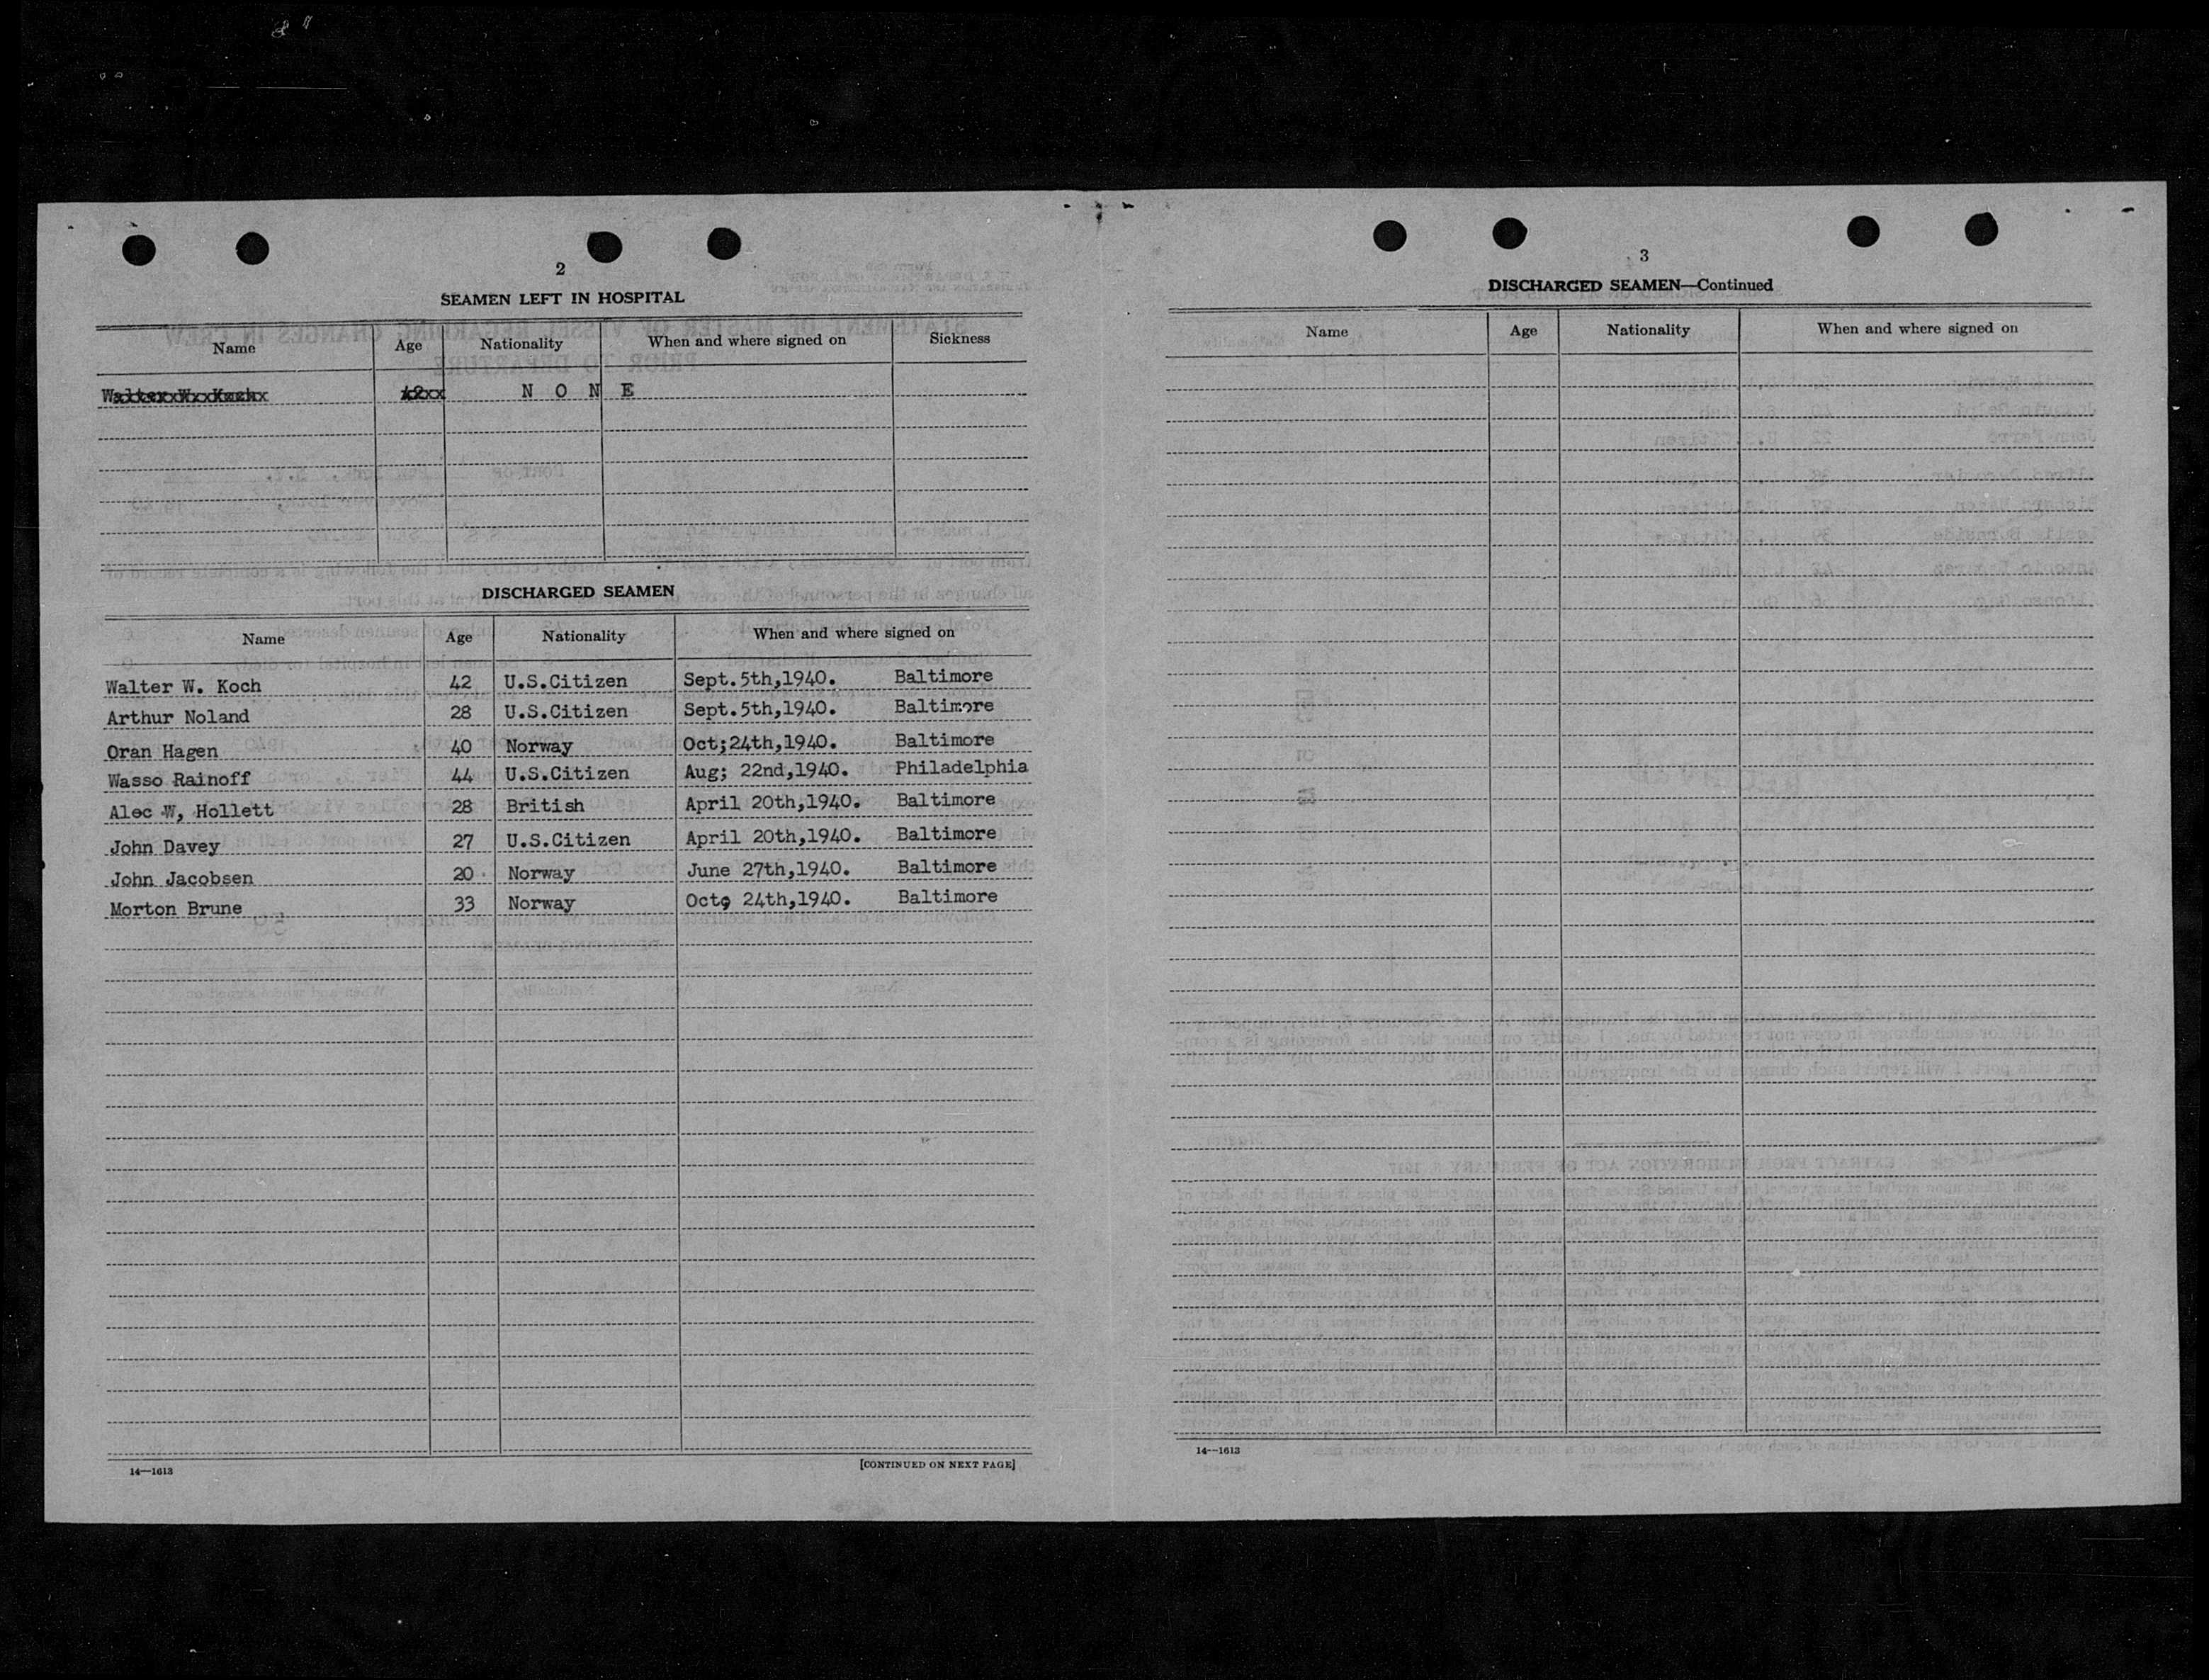 2
SEAMEN LEFT IN HOSPITAL
Name Age Nationality When and where signed on Sickness
N O N E
DISCHARGED SEAMEN
Name Age Nationality When and where signed on
Walter W. Koch 42 U.S.Citizen Sept.5th,1940. Baltimore
Arthur Noland 28 U.S.Citizen Sept.5th,1940. Baltimore
Oran Hagen 40 Norway Oct;24th,1940. Baltimore
Wasso Rainoff 44 U.S.Citizen Aug; 22nd,1940. Philadelphia
Alec W, Hollett 28 British April 20th,1940. Baltimore
John Davey 27 U.S.Citizen April 20th,1940. Baltimore
John Jacobsen 20 Norway June 27th,1940. Baltimore
Morton Brune 33 Norway Oct, 24th,1940. Baltimore
14—1613 [CONTINUED ON NEXT PAGE]
3
DISCHARGED SEAMEN—Continued
Name Age Nationality When and where signed on
14—1613